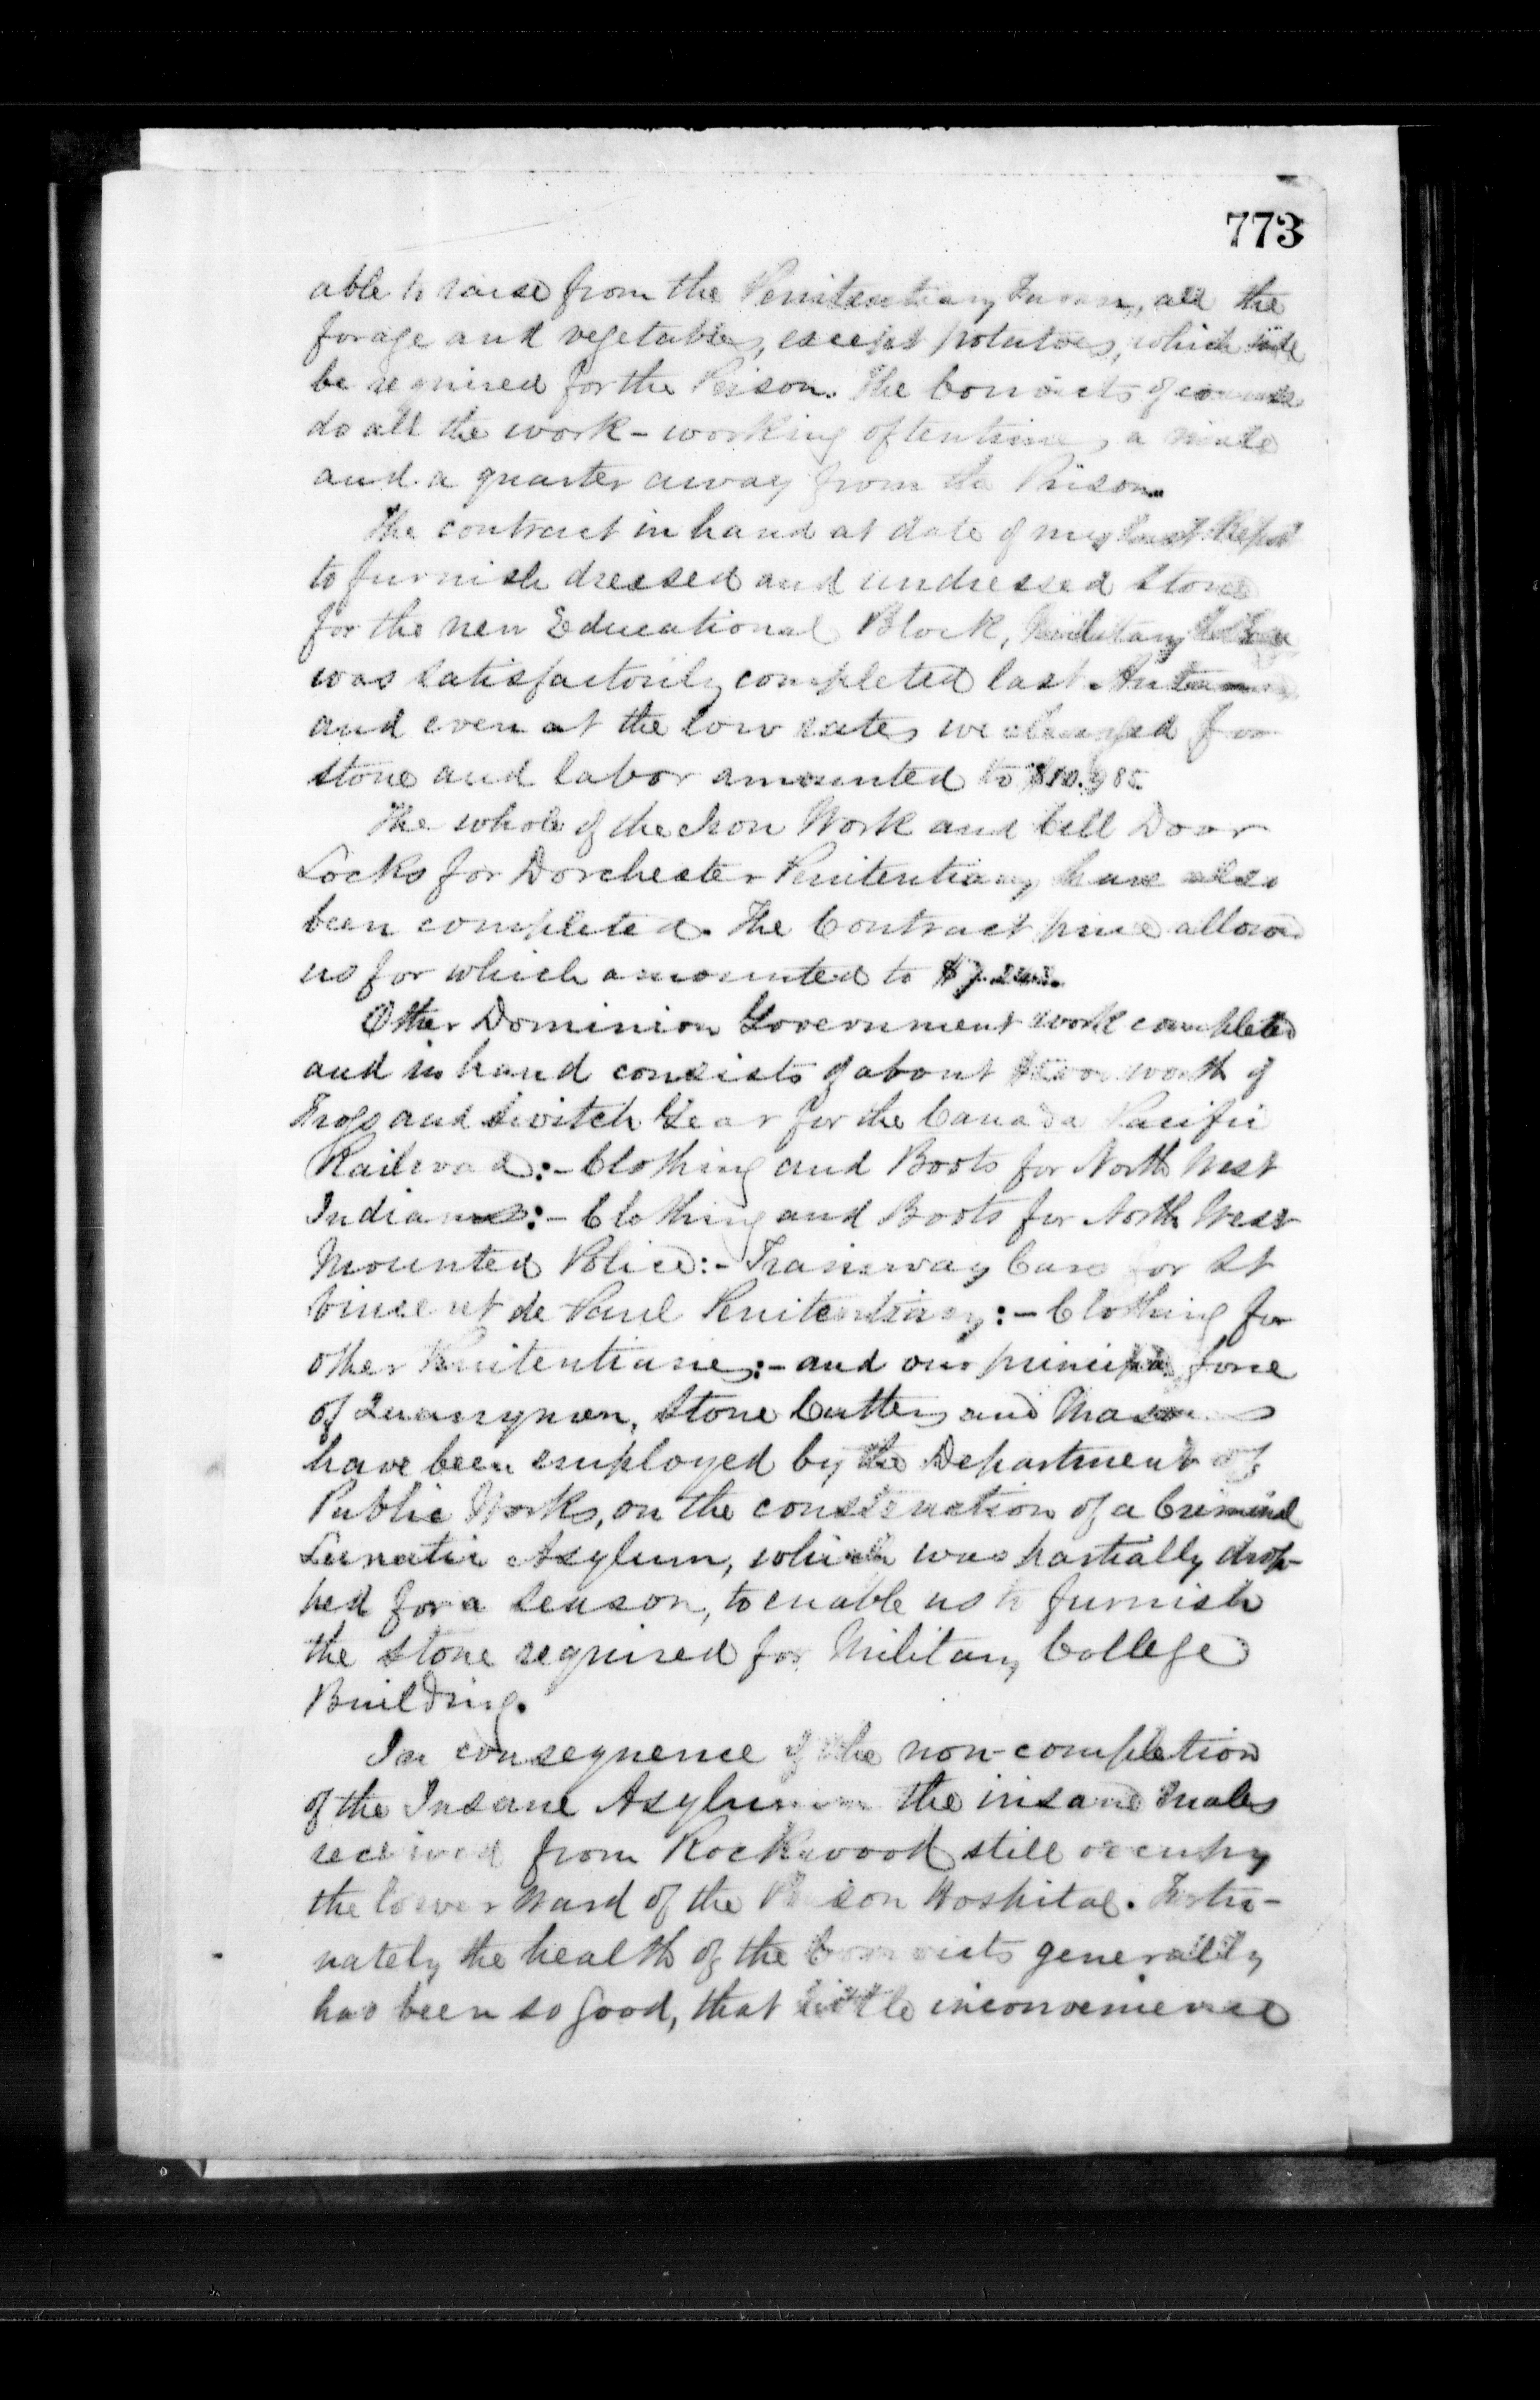 773
able to raise from the Penitentiary Farm, all the
forage and vegetables, except potatoes, which will
be required for the Prison. The Convicts of course
do all the work - working oftentimes a mile
and a quarter away from the Prison.
The contract in hand at date of my last Report
to furnish dressed and undressed Stone
for the new Educational Block, Military College
was satisfactorily completed last Autumn
and even at the low rates we charged for
stone and labor amounted to
The whole of the Iron Work and Cell Door
Locks for Dorchester Penitentiary have also
been completed. The Contract price allowed
us for which amounted to
Other Dominion Government work completed
and in hand consists of about worth of
Frogs and Switch Gear for the Canada Pacific
Railroad:- Clothing and Boots for North West
Indians:- Clothing and Boots for North West
Mounted Police:- Tramway Cars for St
Vincent de Paul Penitentiary:- Clothing for
other Penitentiaries:- and our principal force
of Quarrymen, Stone Cutters and Masons
have been employed by the Department of
Public Works, on the construction of a Criminal
Lunatic Asylum, which was partially drop-
ped for a season, to enable us to furnish
the stone required for Military College
Building.
In consequence of the non-completion
of the Insane Asylum the insane males
received from Rockwood still occupy
the lower Ward of the Prison Hospital. Fortu-
nately the health of the Convicts generally
has been so good, that little inconvenience